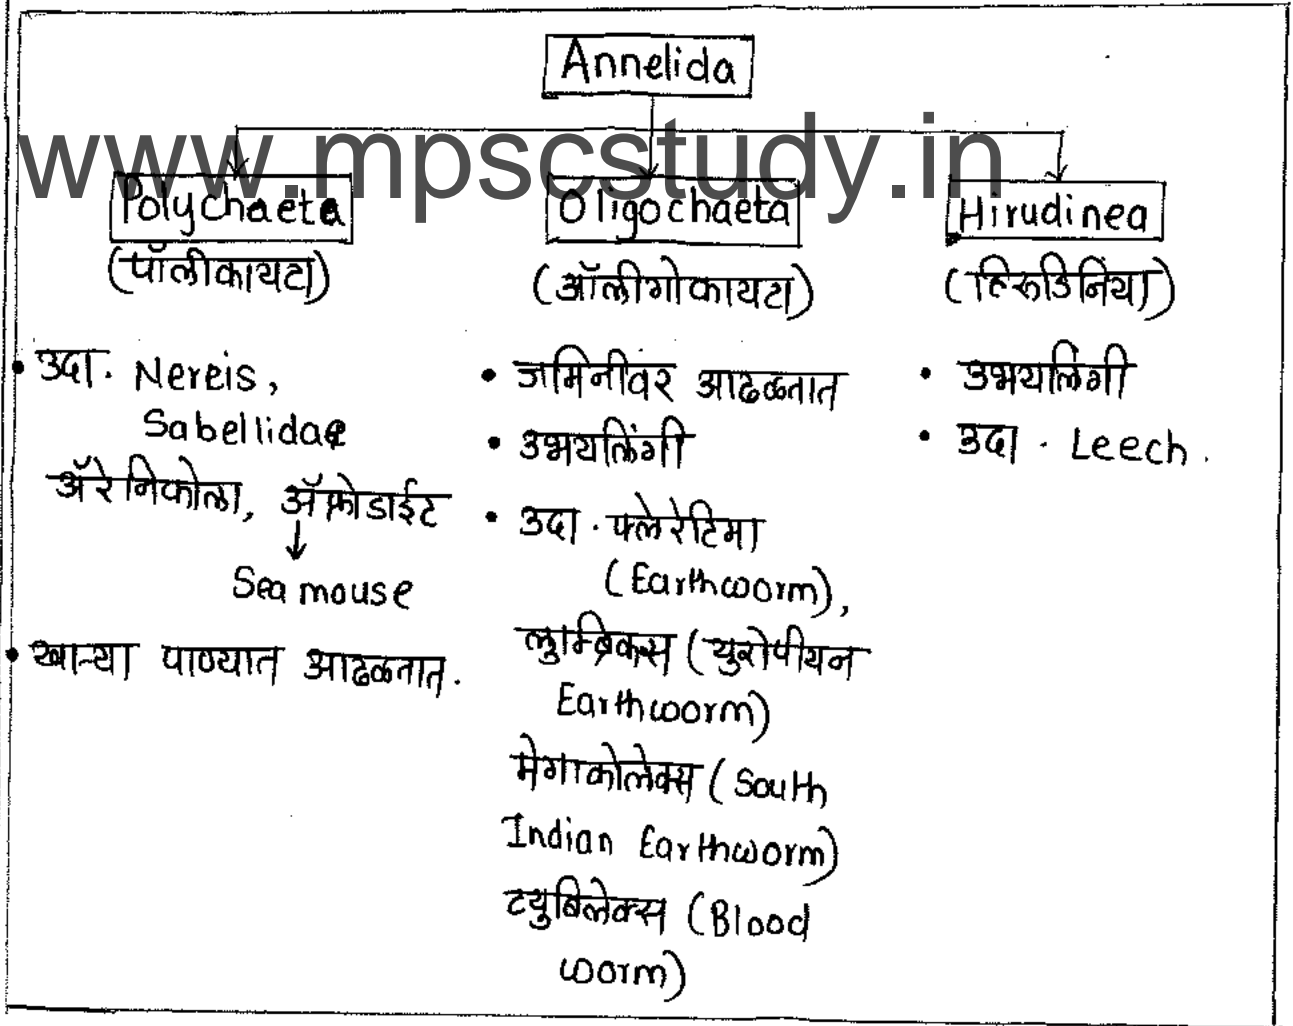 Annelida
www.mpscstudy.in
Polychaeta
(पॉलीकायटा)
• उदा. Nereis,
Sabellidae
ॲरेनिकोला, ॲफ्रोडाईट
↓
Sea mouse
• खाऱ्या पाण्यात आढळतात.
Oligochaeta
(ऑलीगोकायटा)
• जमिनीवर आढळतात
• उभयलिंगी
• उदा. फ्लेरेटिमा
(Earthworm),
लुम्ब्रिकस (युरोपीयन
Earthworm)
मेगाकोलेक्स (South
Indian Earthworm)
टयुबिलेक्स (Blood
worm)
Hirudinea
(हिरुडिनिया)
• उभयलिंगी
• उदा. Leech.